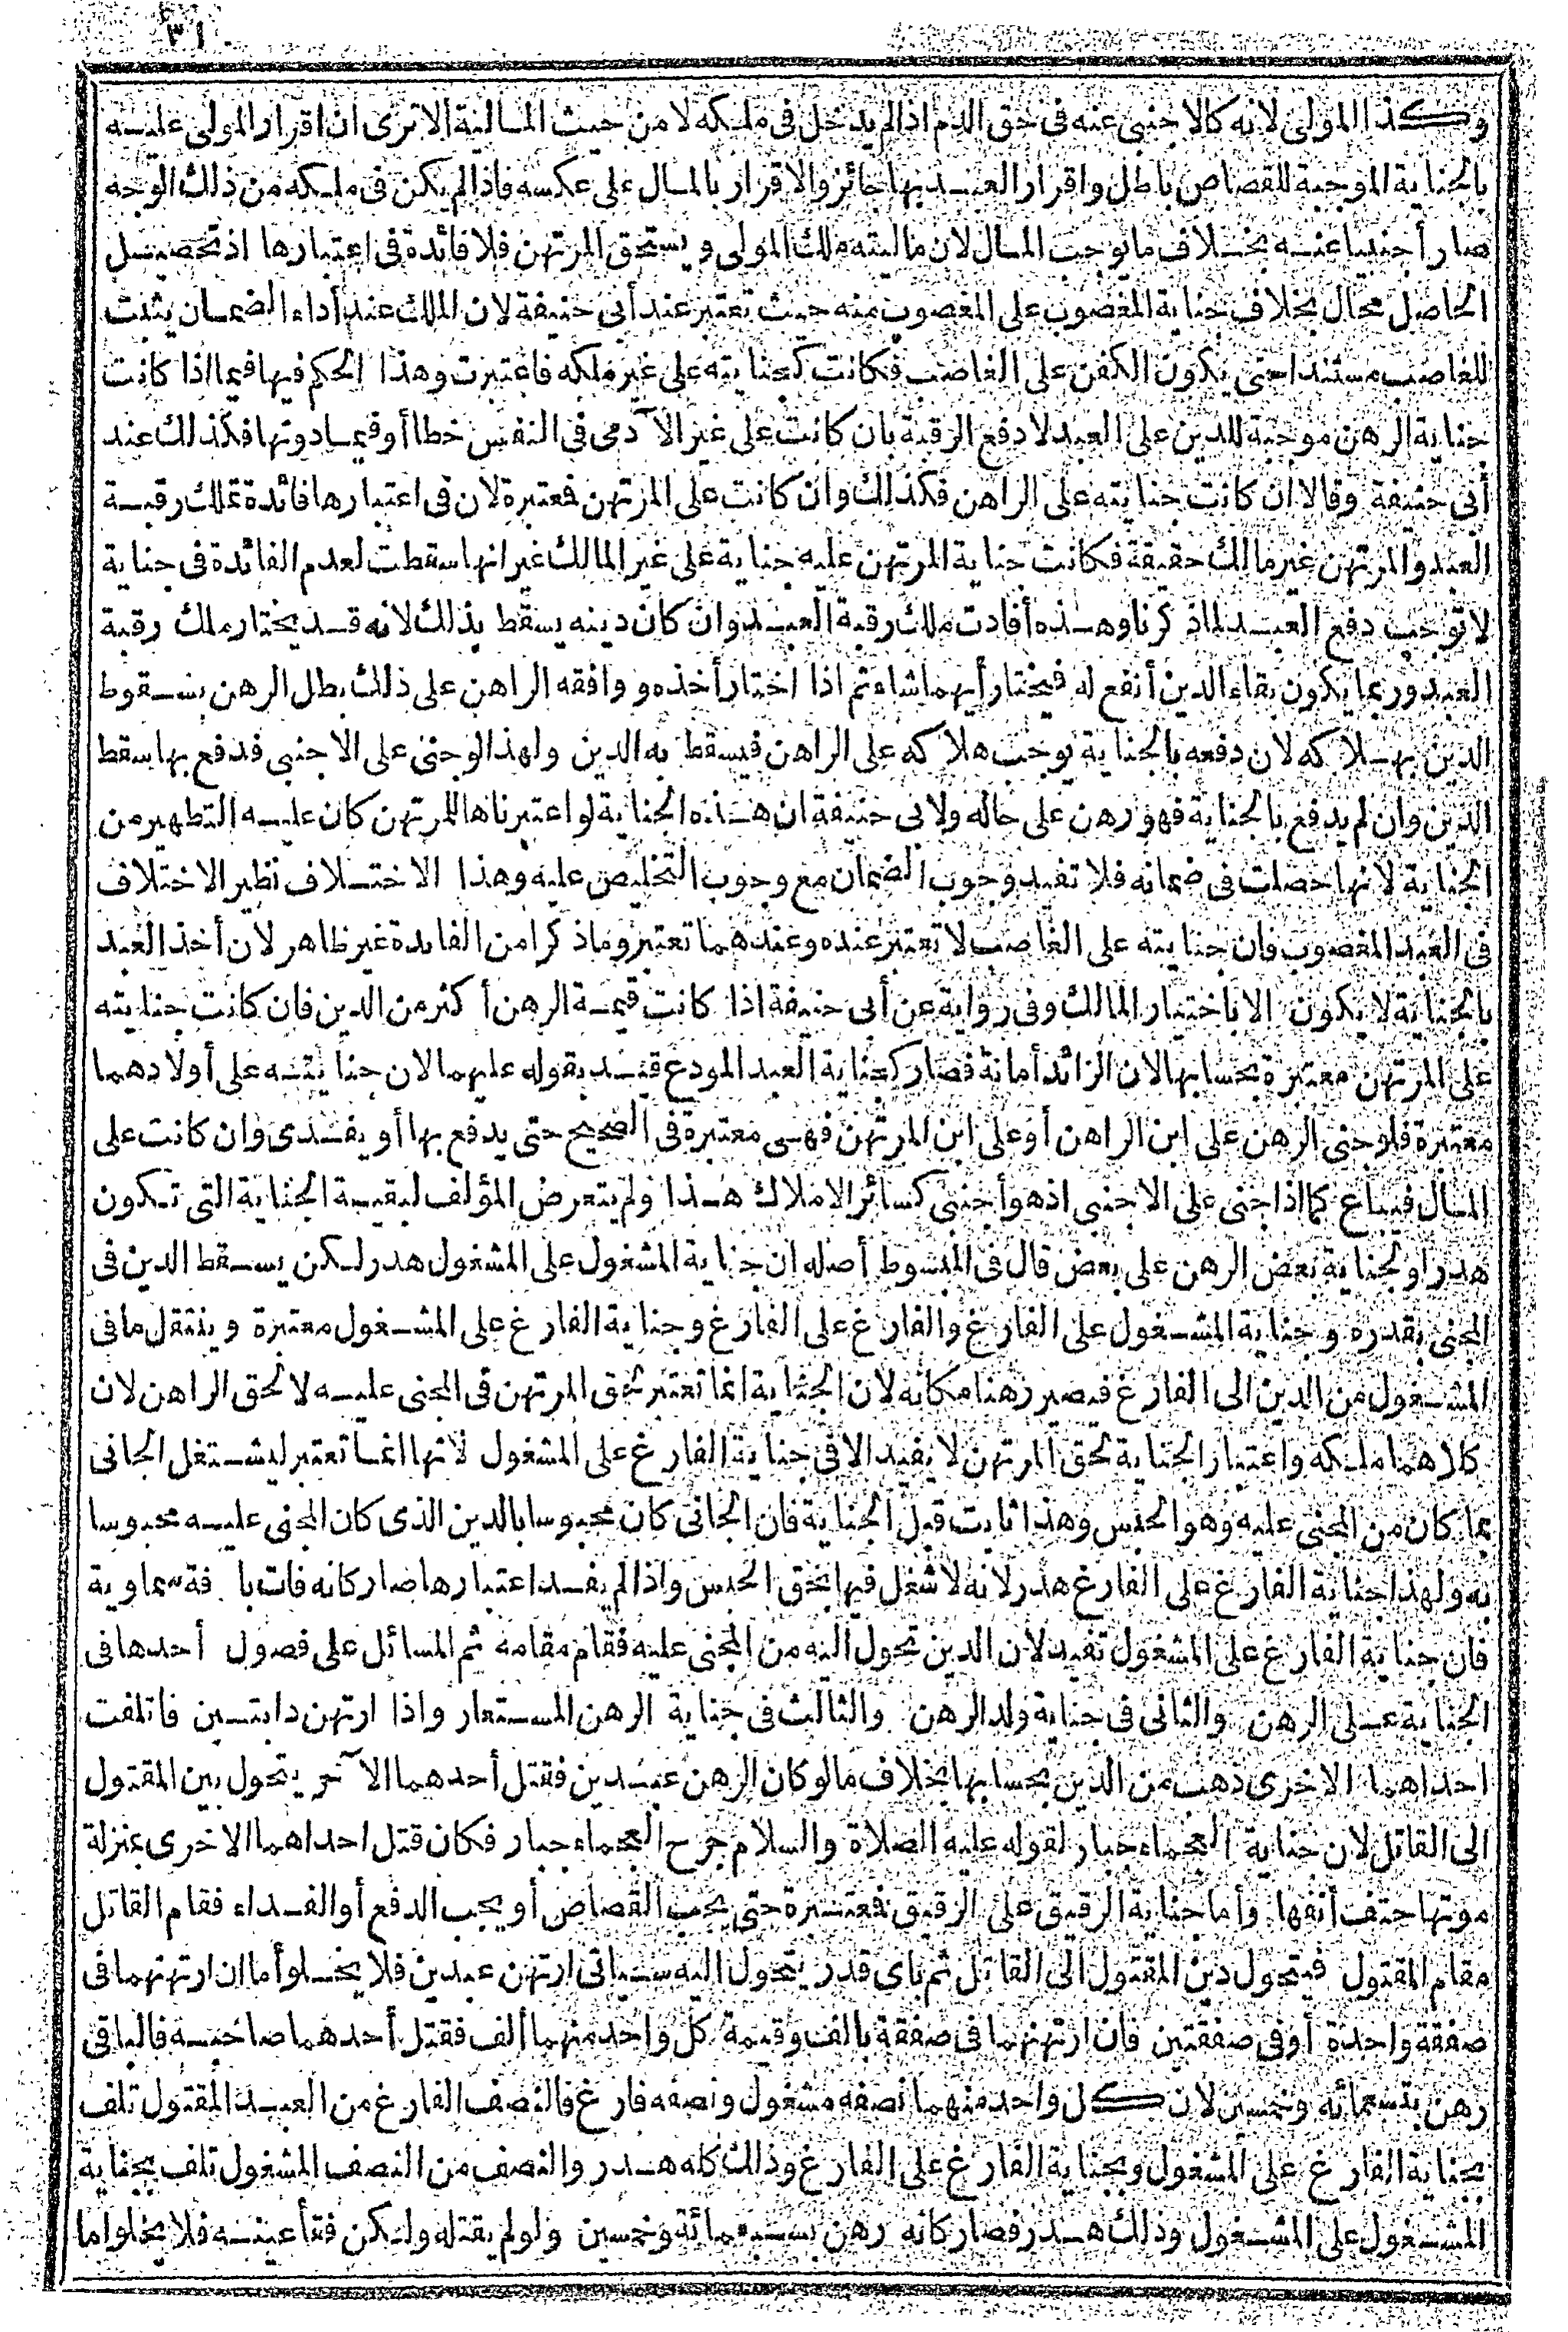 ٣١
وكذا المولى لانه كالاجنبى عنه فى حق الدم اذ لم يدخل فى ملكه لا من حيث المالية الا ترى ان اقرار المولى عليه
بالجناية الموجبة للقصاص باطل واقرار العبد بها جائز والاقرار بالمال على عكسه فاذا لم يكن فى ملكه من ذلك الوجه
صار أجنبيا عنه بخلاف ما يوجب المال لان ماليته ملك المولى ويستحق المرتهن فلا فائدة فى اعتبارها اذ تحصيل
الحاصل محال بخلاف جناية المغصوب على المغصوب منه حيث تعتبر عند أبى حنيفة لان الملك عند أداء الضمان يثبت
للغاصب مستندا حتى يكون الكفن على الغاصب فكانت كجنايته على غير ملكه فاعتبرت وهذا الحكم فيها فيما اذا كانت
جناية الرهن موجبة للدين على العبد لا دفع الرقبة بان كانت على غير الآدمى فى النفس خطا أو فيما دونها فكذلك عند
أبى حنيفة وقالا ان كانت جنايته على الراهن فكذلك وان كانت على المرتهن فمعتبرة لان فى اعتبارها فائدة تملك رقبة
العبد والمرتهن غير مالك حقيقة فكانت جناية المرتهن عليه جناية على غير المالك غير انها سقطت لعدم الفائدة فى جناية
لا توجب دفع العبد لما ذكرنا وهذه أفادت ملك رقبة العبد وان كان دينه يسقط بذلك لانه قد يختار ملك رقبة
العبد وربما يكون بقاء الدين أنفع له فيختار أيهما شاء ثم اذا اختار أخذه ووافقه الراهن على ذلك بطل الرهن بسقوط
الدين بهلاكه لان دفعه بالجناية يوجب هلاكه على الراهن فيسقط به الدين ولهذا لو جنى على الاجنبى فدفع بها سقط
الدين وان لم يدفع بالجناية فهو رهن على حاله ولابى حنيفة ان هذه الجناية لو اعتبرناها للمرتهن كان عليه التطهير من
الجناية لانها حصلت فى ضمانه فلا تفيد وجوب الضمان مع وجوب التخليص عليه وهذا الاختلاف نظير الاختلاف
فى العبد المغصوب فان جنايته على الغاصب لا تعتبر عنده وعندهما تعتبر وما ذكرا من الفائدة غير ظاهر لان أخذ العبد
بالجناية لا يكون الا باختيار المالك وفى رواية عن أبى حنيفة اذا كانت قيمة الرهن أكثر من الدين فان كانت جنايته
على المرتهن معتبرة بحسابها لان الزائد أمانة فصار كجناية العبد المودع قيد بقوله عليهما لان جنايته على أولادهما
معتبرة فلو جنى الرهن على ابن الراهن أو على ابن المرتهن فهى معتبرة فى الصحيح حتى يدفع بها أو يفتدى وان كانت على
المال فيباع كما اذا جنى على الاجنبى اذ هو أجنبى كسائر الاملاك هذا ولم يتعرض المؤلف لبقية الجناية التى تكون
هدرا ولجناية بعض الرهن على بعض قال فى المبسوط أصله ان جناية المشغول على المشغول هدر لكن يسقط الدين فى
المجنى بقدره وجناية المشغول على الفارغ والفارغ على الفارغ وجناية الفارغ على المشغول معتبرة وينتقل ما فى
المشغول من الدين الى الفارغ فيصير رهنا مكانه لان الجناية انما تعتبر لحق المرتهن فى المجنى عليه لا لحق الراهن لان
كلاهما ملكه واعتبار الجناية لحق المرتهن لا يفيد الا فى جناية الفارغ على المشغول لانها انما تعتبر ليشتغل الجانى
بما كان من المجنى عليه وهو الحبس وهذا ثابت قبل الجناية فان الجانى كان محبوسا بالدين الذى كان المجنى عليه محبوسا
به ولهذا جناية الفارغ على الفارغ هدر لانه لا شغل فيها بحق الحبس واذا لم يفد اعتبارها صار كانه فات با فة سماوية
فان جناية الفارغ على المشغول تفيد لان الدين تحول اليه من المجنى عليه فقام مقامه ثم المسائل على فصول أحدها فى
الجناية على الرهن والثانى فى جناية ولد الرهن والثالث فى جناية الرهن المستعار واذا ارتهن دابتين فاتلفت
احداهما الاخرى ذهب من الدين بحسابها بخلاف ما لو كان الرهن عبدين فقتل أحدهما الآخر يتحول بين المقتول
الى القاتل لان جناية العجماء جبار لقوله عليه الصلاة والسلام جرح العجماء جبار فكان قتل احداهما الاخرى بمنزلة
موتها حتف أنفها وأما جناية الرقيق على الرقيق فمعتبرة حتى يجب القصاص أو يجب الدفع أو الفداء فقام القاتل
مقام المقتول فيتحول دين المقتول الى القاتل ثم باى قدر يتحول اليه سياتى ارتهن عبدين فلا يخلو أما ان ارتهنهما فى
صفقة واحدة أو فى صفقتين فان ارتهنهما فى صفقة بالف وقيمة كل واحد منهما ألف فقتل أحدهما صاحبه فالباقى
رهن بتسعمائه وخمسين لان كل واحد منهما نصفه مشغول ونصفه فارغ فالنصف الفارغ من العبد المقتول تلف
بجناية الفارغ على المشغول وبجناية الفارغ على الفارغ وذلك كله هدر والنصف من النصف المشغول تلف بجناية
المشغول على المشغول وذلك هدر فصار كانه رهن بسبعمائة وخمسين ولو لم يقتله ولكن فقأ عينه فلا يخلو اما